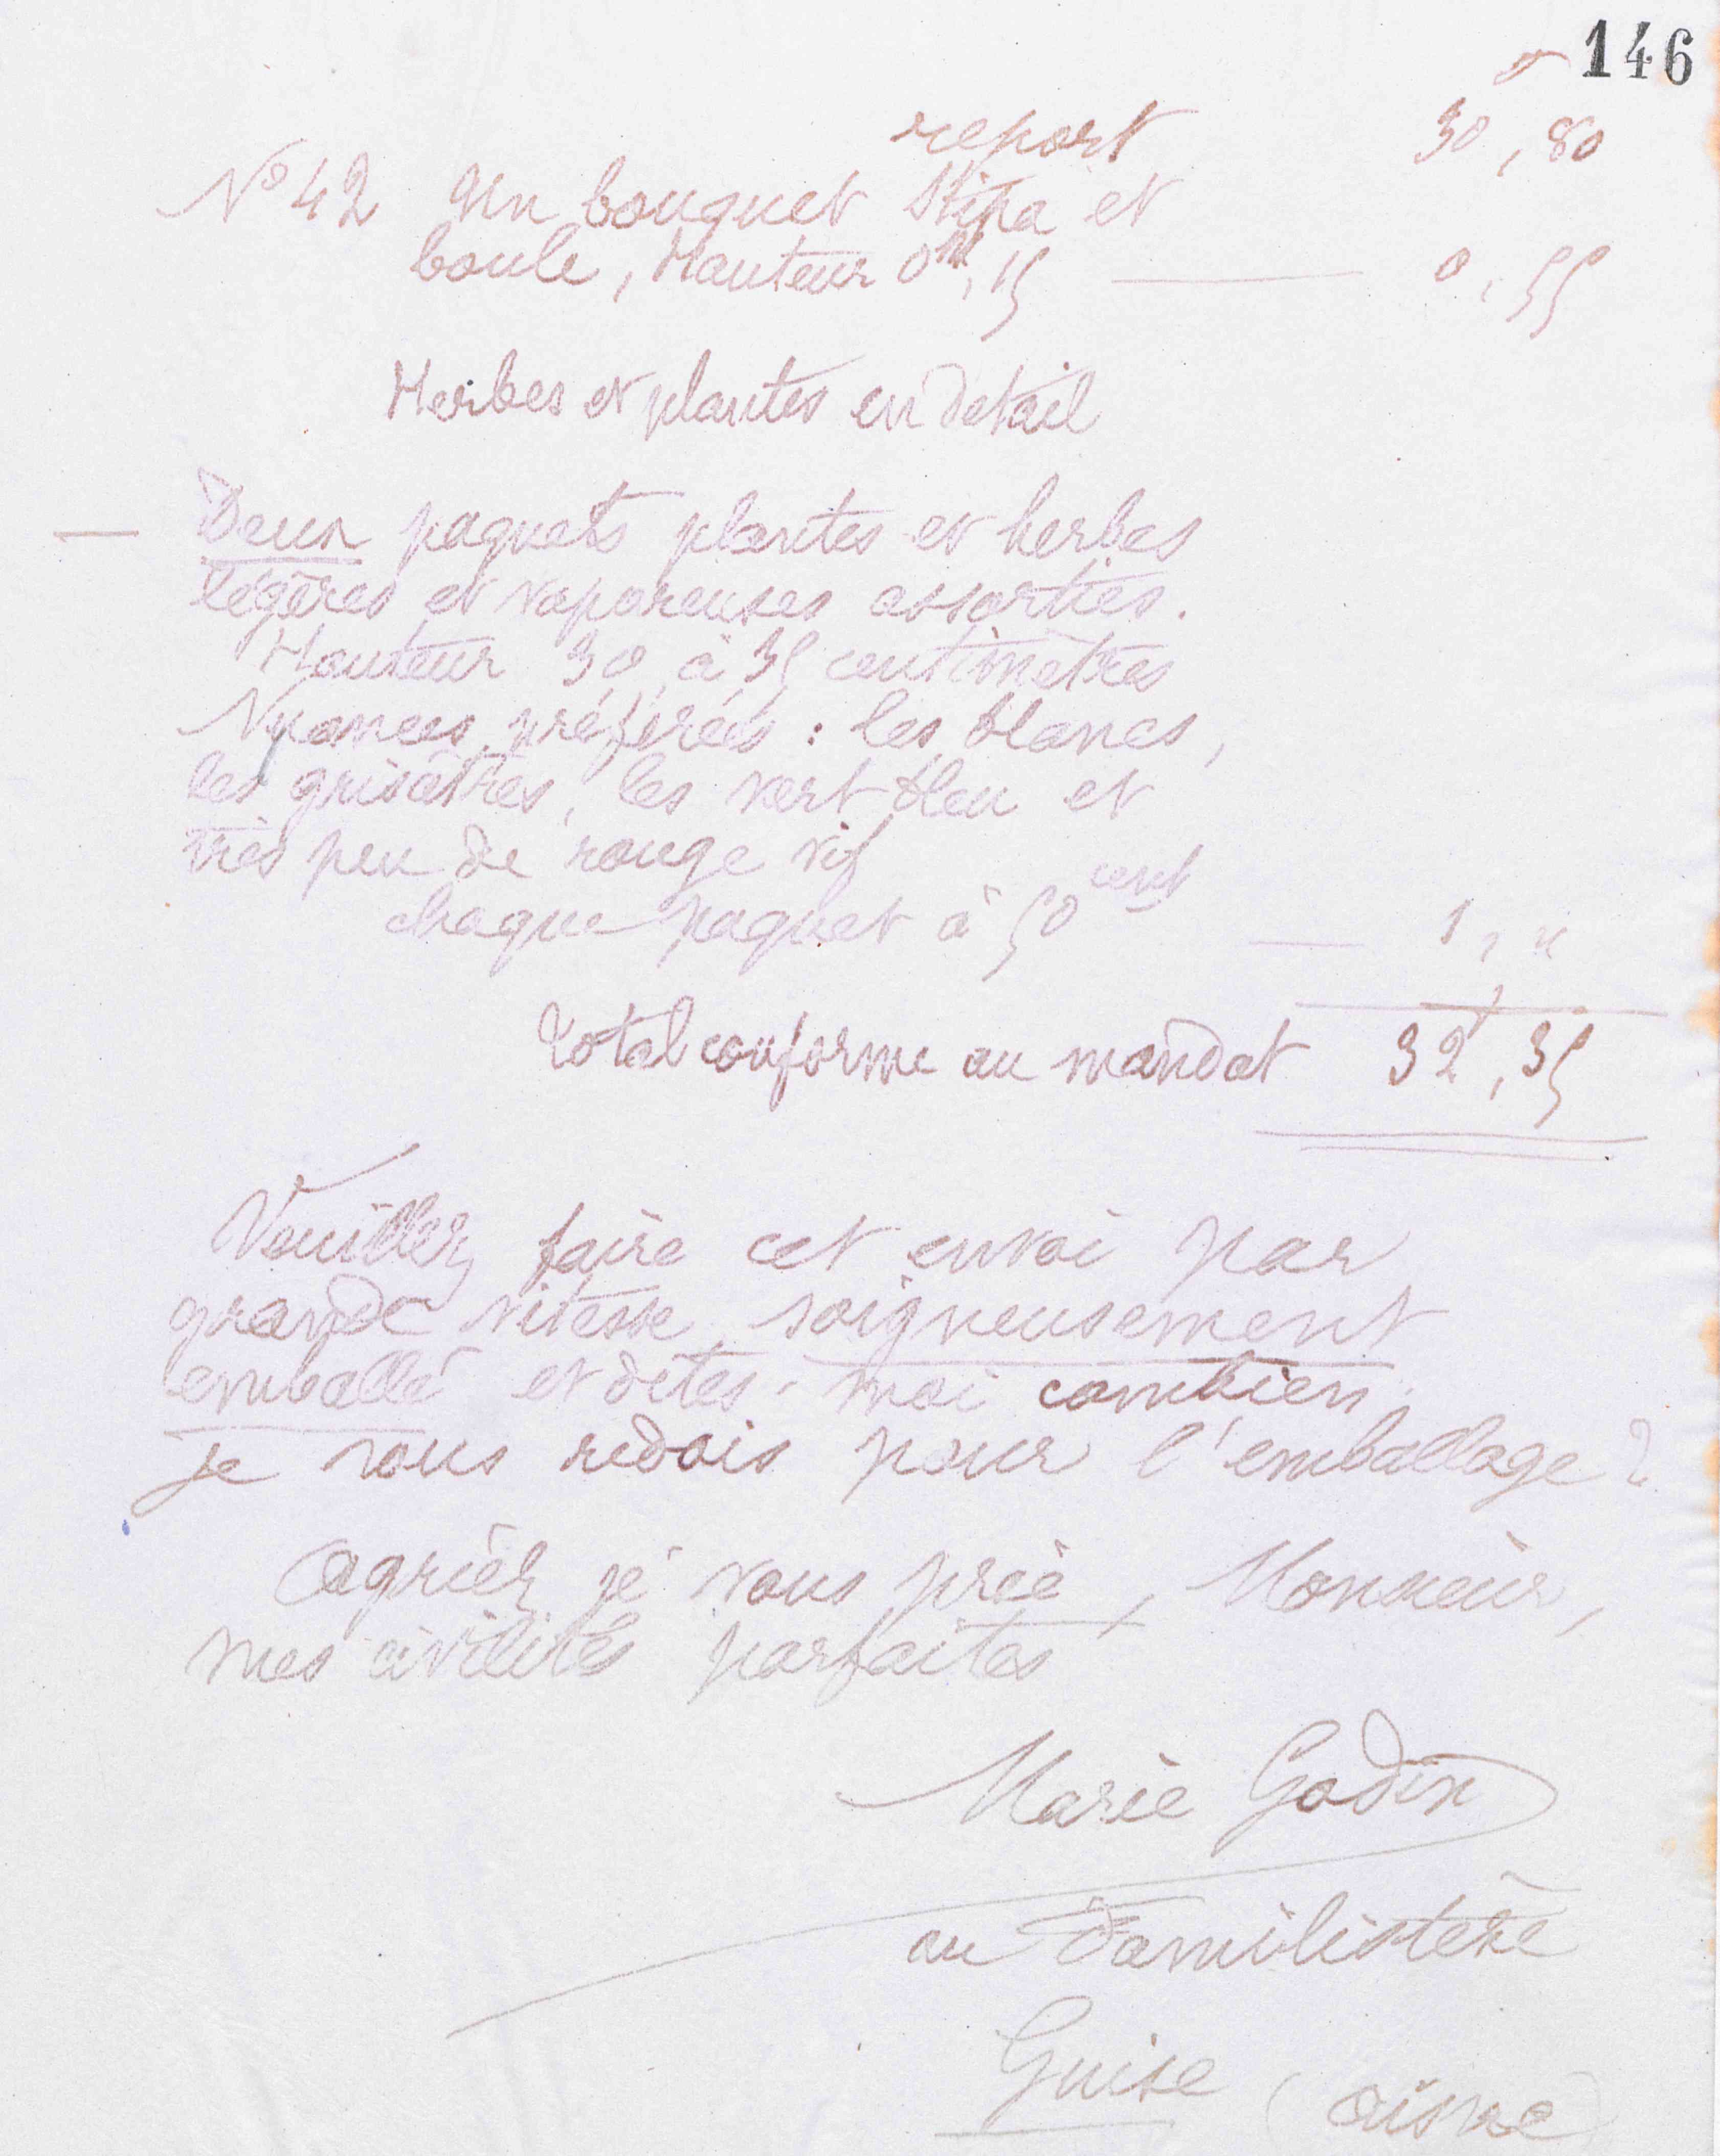 146
report 30, 80
No 42 Un bouquet Stipa et
boule, Hauteur 0m,15 — 0, 55
Herbes et plantes en détail
— Deux paquets plantes et herbes
légères et vaporeuses assorties.
Hauteur 30 à 35 centimètres
Nuances préférées : les blancs,
les grisâtres, les vert bleu et
très peu de rouge vif
chaque paquet à 50 cent — 1, "
Total conforme au mandat 32f, 35
Veuillez faire cet envoi par
grande vitesse, soigneusement
emballé et dites-moi combien
je vous redois pour l'emballage ?
Agréez, je vous prie, Monsieur,
mes civilités parfaites
Marie Godin
au Familistère
Guise (Aisne)